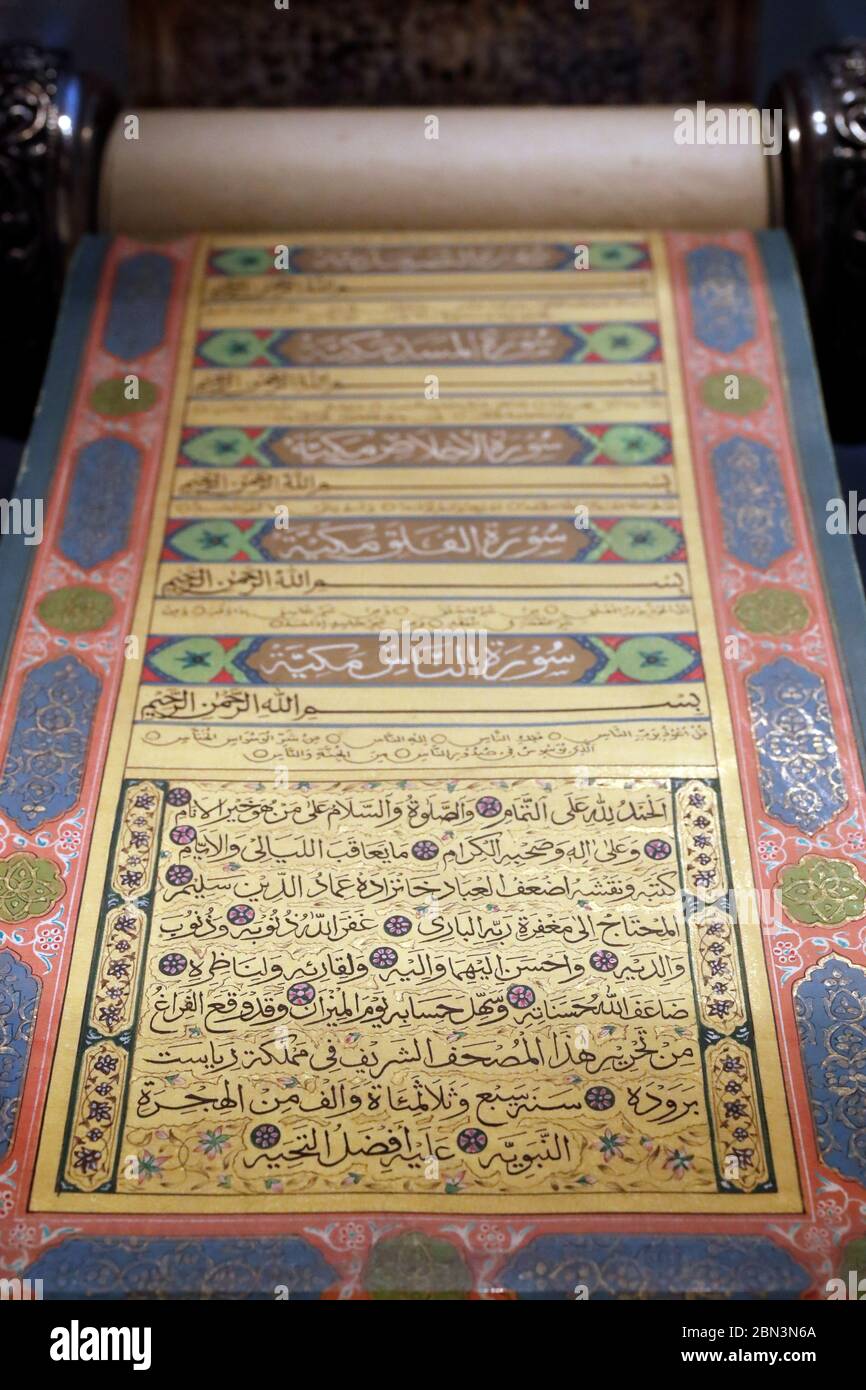 سورة المسد مكية
بسم الله الرحمن الرحيم
سورة الإخلاص مكية
بسم الله الرحمن الرحيم
سورة الفلق مكية
بسم الله الرحمن الرحيم
سُورَة النَّاسِ مَكيَّة
بِسْمِ اللهِ الرَّحْمٰنِ الرَّحِيْمِ
قل اعوذ برب الناس ملك الناس اله الناس من شر الوسواس الخناس
الذي يوسوس في صدور الناس من الجنة والناس
الحمد لله على التمام والصلوة والسلام على من هو خير الانام
وعلى اله وصحبه الكرام ما يعاقب الليالى والايام
كتبه ونقشه اضعف العباد خانزاده عماد الدين سليم
المحتاج الى مغفرة ربه البارى غفر الله ذنوبه وذنوب
والديه واحسن اليهما واليه ولقارئه ولناظره
ضاعف الله حسناته وسهل حسابه يوم الميزان وقد وقع الفراغ
من تحرير هذا المصحف الشريف في مملكة رياست
بروده سنة سبع وثلاثمئاة والف من الهجرة
النبويه عليه افضل التحيه
alamy
Image ID: 2BN3N6A
www.alamy.com